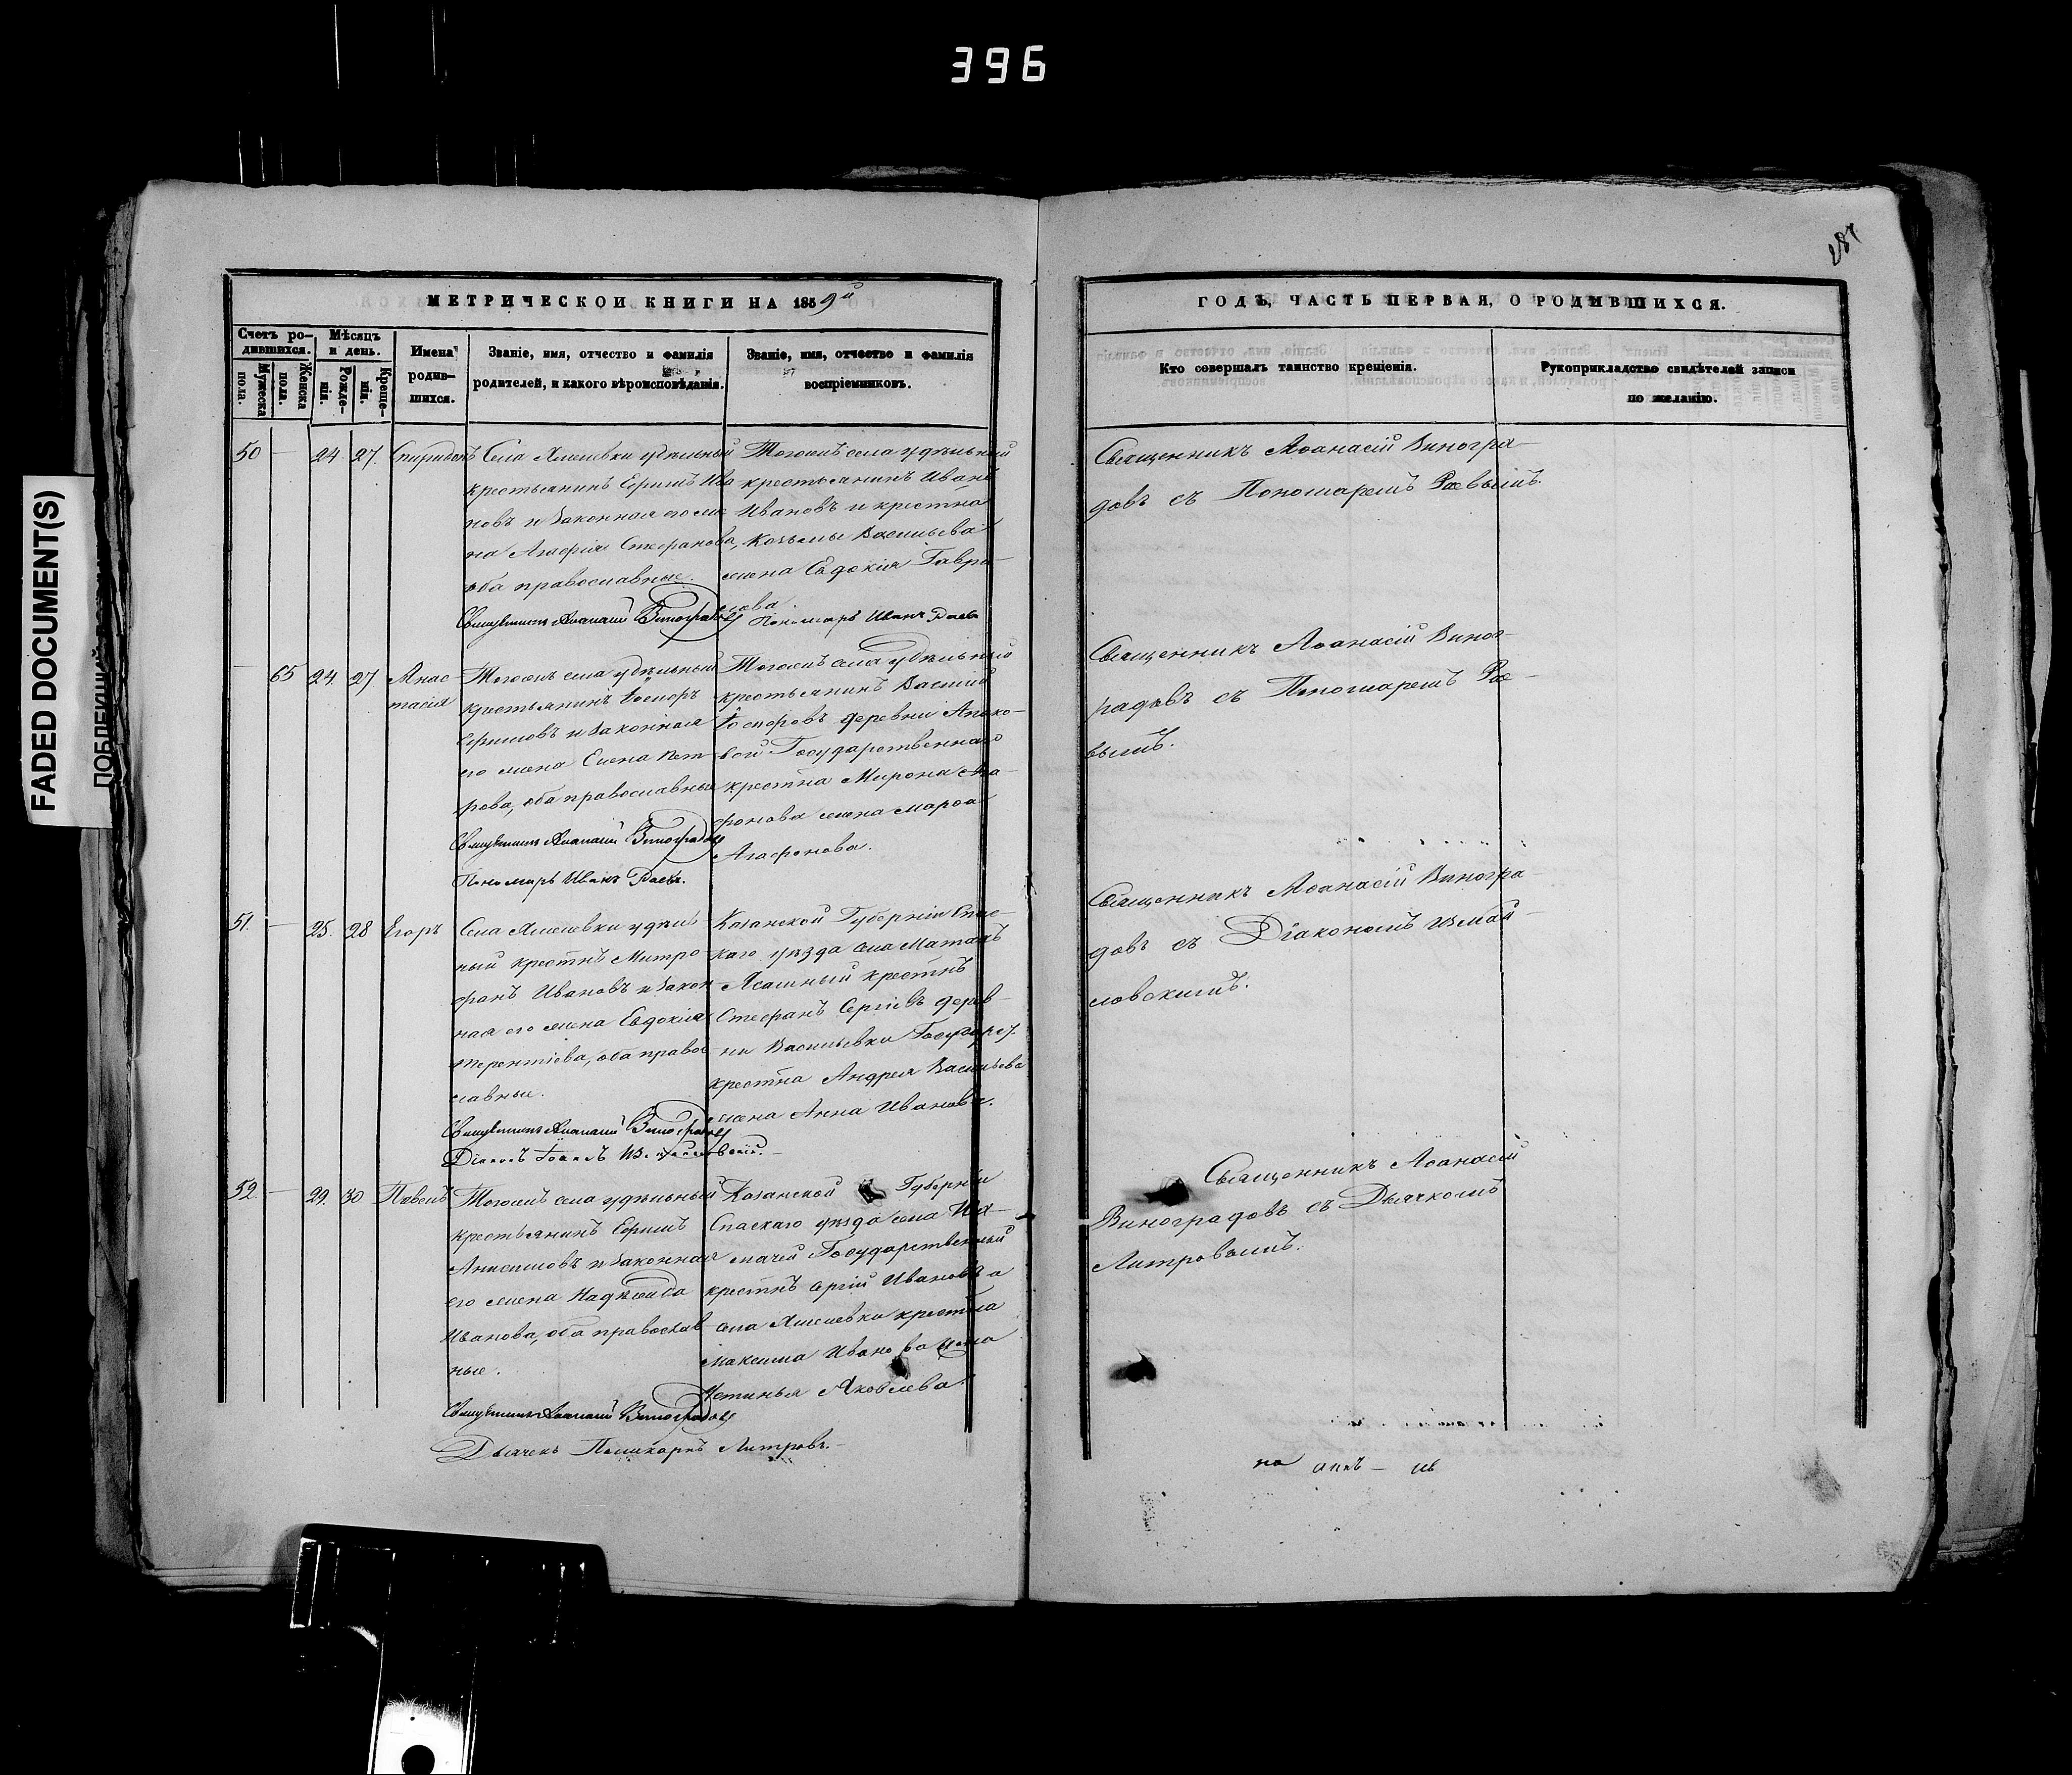 396
FADED DOCUMENT(S)
287
МЕТРИЧЕСКОЙ КНИГИ НА 1859й
ГОДЪ, ЧАСТЬ ПЕРВАЯ, О РОДИВШИХСЯ.
Счетъ ро-
дившихся.
Мужеска
пола.
Женска
пола.
Мѣсяцъ
и день.
Рожде-
нія.
Креще-
нія.
Имена
родив-
шихся.
Званіе, имя, отчество и фамилія
родителей, и какого вѣроисповѣданія.
Званіе, имя, отчество и фамилія
воспріемниковъ.
Кто совершалъ таинство крещенія.
Рукоприкладство свидѣтелей записи
по желанію.
50 — 24. 27. Спиридонъ
Села удѣльный
крестьянинъ Ефимъ Ива
новъ и законная его же
на Агафія Стефанова,
оба православные.
Священникъ Аѳанасій Виноградовъ
Тогожъ села удѣльный
крестьянинъ Иванъ
Ивановъ и крестна
Козьмы Васильева
жена Евдокія Гаври-
лова.
Пономарь Иванъ Раевъ
Священникъ Аѳанасій Виногра-
довъ съ Пономаремъ Раевымъ.
— 65 24. 27 Анас-
тасія
Тогожъ села удѣльный
крестьянинъ
Ефимовъ и законная
его жена Елена Пет-
рова, оба православны
Священникъ Аѳанасій Виноградовъ
Пономарь Иванъ Раевъ.
Тогожъ села удѣльный
крестьянинъ Василій
деревни
вой Государственнаго
крестна Мирона
жена Марѳа
Агафонова.
Священникъ Аѳанасій Виног-
радовъ съ Пономаремъ Рае-
вымъ.
51. — 25. 28 Егоръ
Села удѣль
ный крестнъ Митро-
фанъ Ивановъ и закон
ная его жена Евдокія
Терентіева, оба право-
славные.
Священникъ Аѳанасій Виноградовъ
Діаконъ Іоаннъ Измайловскій.
Казанской Губерніи Спас-
каго уѣзда села Матакъ
Ясашный крестнъ
Стефанъ Сергіевъ дерев-
ни Васильевки Государ.
крестна Андрея Васильева
жена Анна Иванова.
Священникъ Аѳанасій Виногра-
довъ съ Діакономъ Измай-
ловскимъ.
52. — 29. 30 Павелъ
Тогожъ села удѣльный
крестьянинъ Ефимъ
Анисимовъ и законная
его жена Надежда
Иванова, оба православ
ные.
Священникъ Аѳанасій Виноградовъ
Дьячекъ Поликарпъ Литровъ.
Казанской Губерніи
Спаскаго уѣзда села
Государственный
крестнъ Сергій Ивановъ а
села крестна
Максима Иванова жена
Устинья Яковлева.
Священникъ Аѳанасій
Виноградовъ съ Дьячкомъ
Литровымъ.